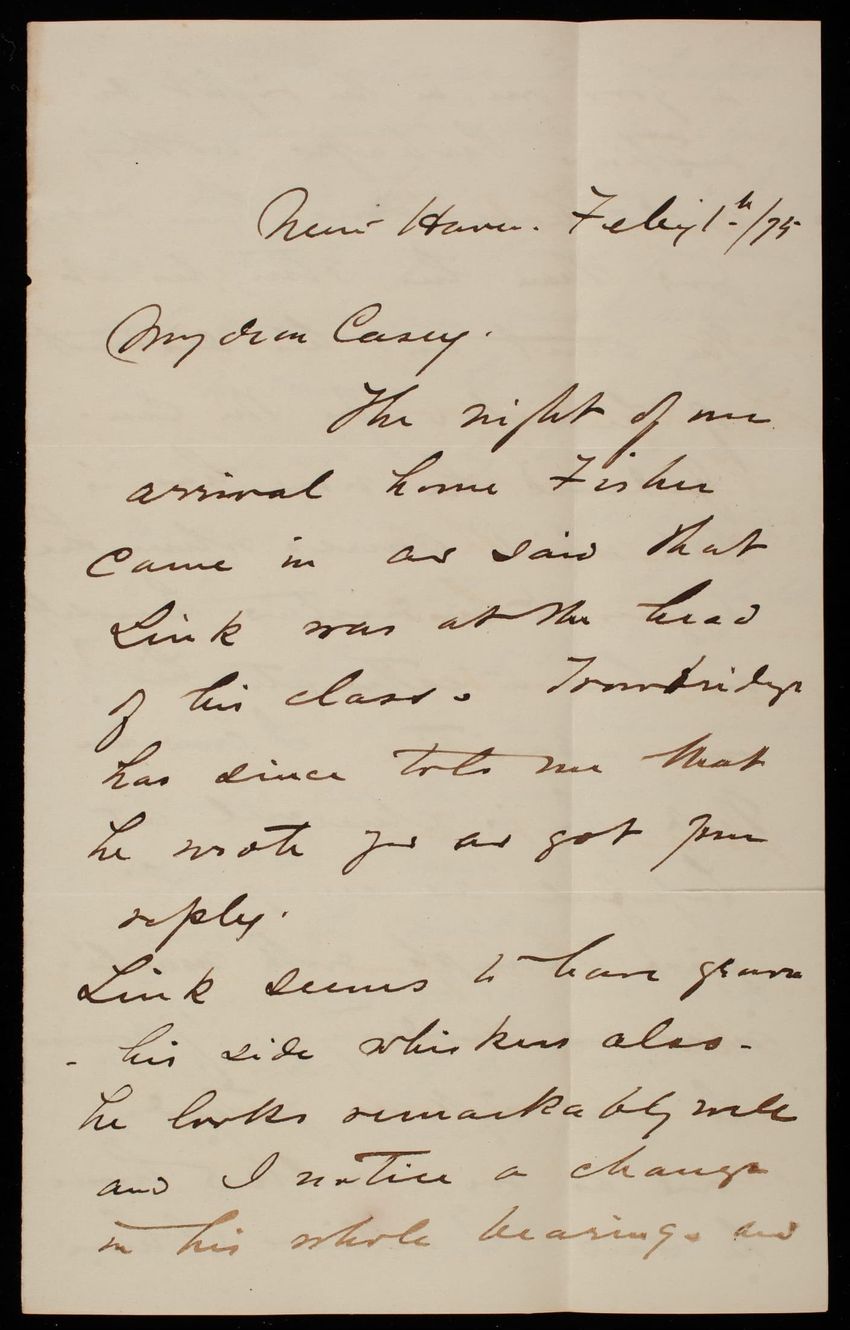 New Haven. Feby 1st/75
My dear Casey.
The night of my
arrival home Fisher
came in and said that
Link was at the head
of his class. Trowbridge
has since told me that
he wrote you and got your
reply.
Link seems to have grown
- his side whiskers also -
he looks remarkably well
and I notice a change
in his whole bearing. and